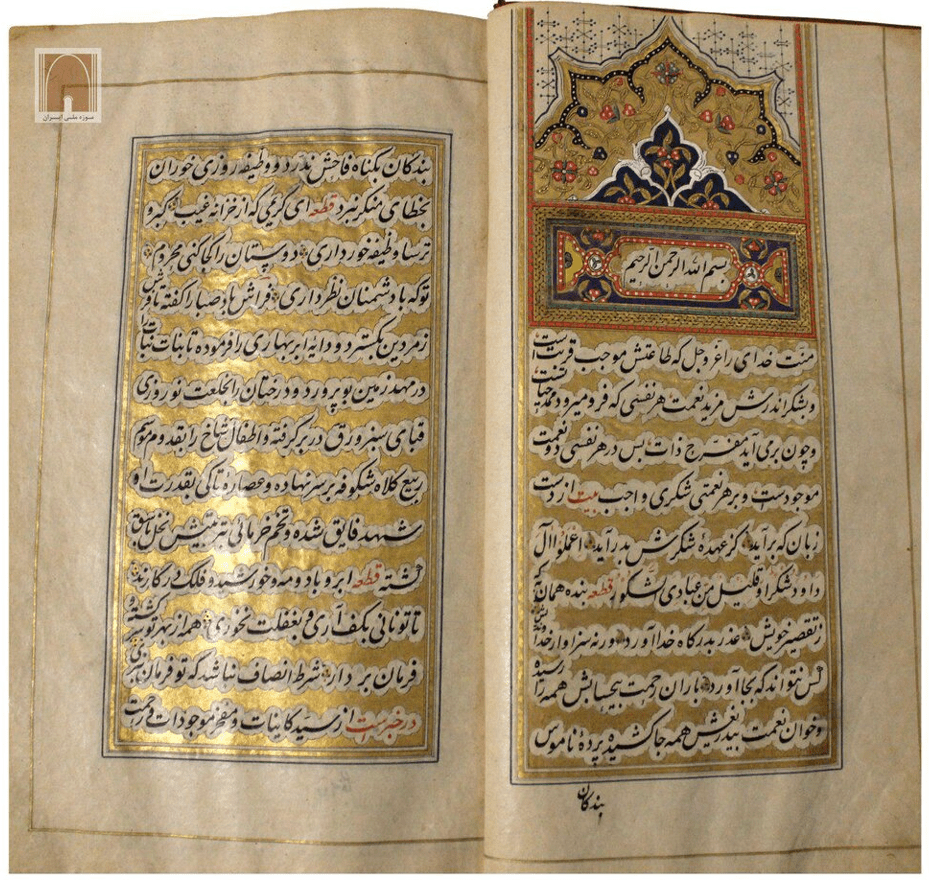 بسم الله الرحمن الرحیم
منت خدای را عز و جل که طاعتش موجب قربت است
و بشکر اندرش مزید نعمت هر نفسی که فرو میرود ممد حیاتست
و چون برمی آید مفرح ذات پس در هر نفسی دو نعمت
موجودست و بر هر نعمتی شکری واجب بیت از دست
زبان که برآید کز عهدهٔ شکرش بدر آید اعملوا آل
داود شکرا و قلیل من عبادی الشکور قطعه بنده همان به که
ز تقصیر خویش عذر بدرگاه خدا آورد ورنه سزاوار خداوندیش
کس نتواند که بجا آورد باران رحمت بیحسابش همه را رسیده
و خوان نعمت بیدریغش همه جا کشیده پردهٔ ناموس
بندگان
بندگان بگناه فاحش ندرد و وظیفه روزی خوران
بخطای منکر نبرد قطعه ای کریمی که از خزانه غیب گبر و
ترسا وظیفه خور داری دوستان را کجا کنی محروم
تو که با دشمنان نظر داری فراش باد صبا را گفته تا فرش
زمردین بگسترد و دایهٔ ابر بهاری را فرموده تا بنات نبات را
در مهد زمین بپرورد و درختان را بخلعت نوروزی
قبای سبز ورق در بر گرفته و اطفال شاخ را بقدوم موسم
ربیع کلاه شکوفه بر سر نهاده و عصارهٔ تاکی بقدرت او
شهد فایق شده و تخم خرمائی تربیتش نخل باسق
گشته قطعه ابر و باد و مه و خورشید و فلک در کارند
تا تو نانی بکف آری و بغفلت نخوری همه از بهر تو سرگشته و
فرمان بردار شرط انصاف نباشد که تو فرمان نبری
در خبرست از سید کاینات و مفخر موجودات و رحمت
موزه ملی ایران